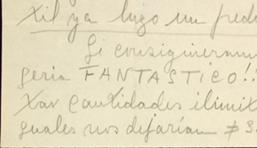 ya luego un pedi
Si consiguieram
seria FANTASTICO!!
cantidades ilimit
guales nos dejarian